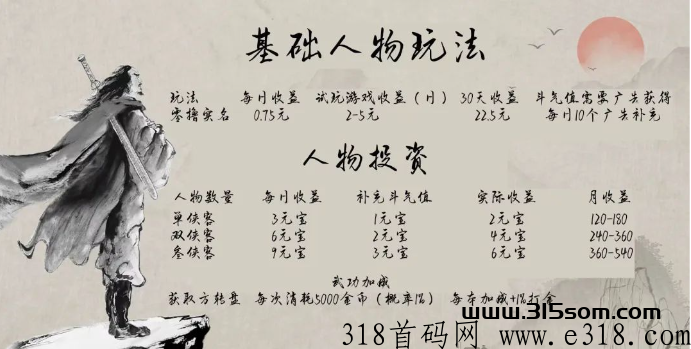 基础人物玩法
玩法 每日收益 试玩游戏收益(日) 30天收益 斗气值需要广告获得
零撸实名 0.75元 2-5元 22.5元 每日10个广告补充
人物投资
人物数量 每日收益 补充斗气值 实际收益 月收益
单侠客 3元宝 1元宝 2元宝 120-180
双侠客 6元宝 2元宝 4元宝 240-360
叁侠客 9元宝 3元宝 6元宝 360-540
武功加成
获取方转盘 每次消耗5000金币(概率1%) 每本加成+1%打金
www.315som.com
318首码网 www.e318.com